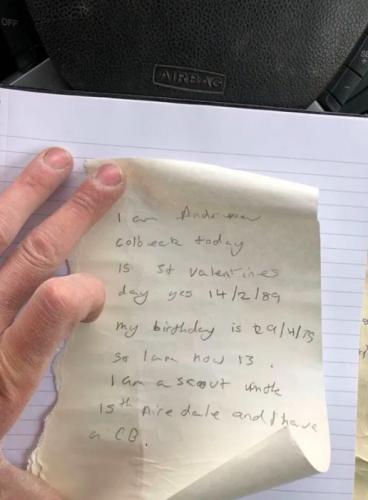 OFF
AIRBAG
I am Andrew
Colbeck today
is St Valentines
day yes 14/2/89
my birthday is
so I am now 13.
I am a scout with
15th Airedale and I have
a CB.